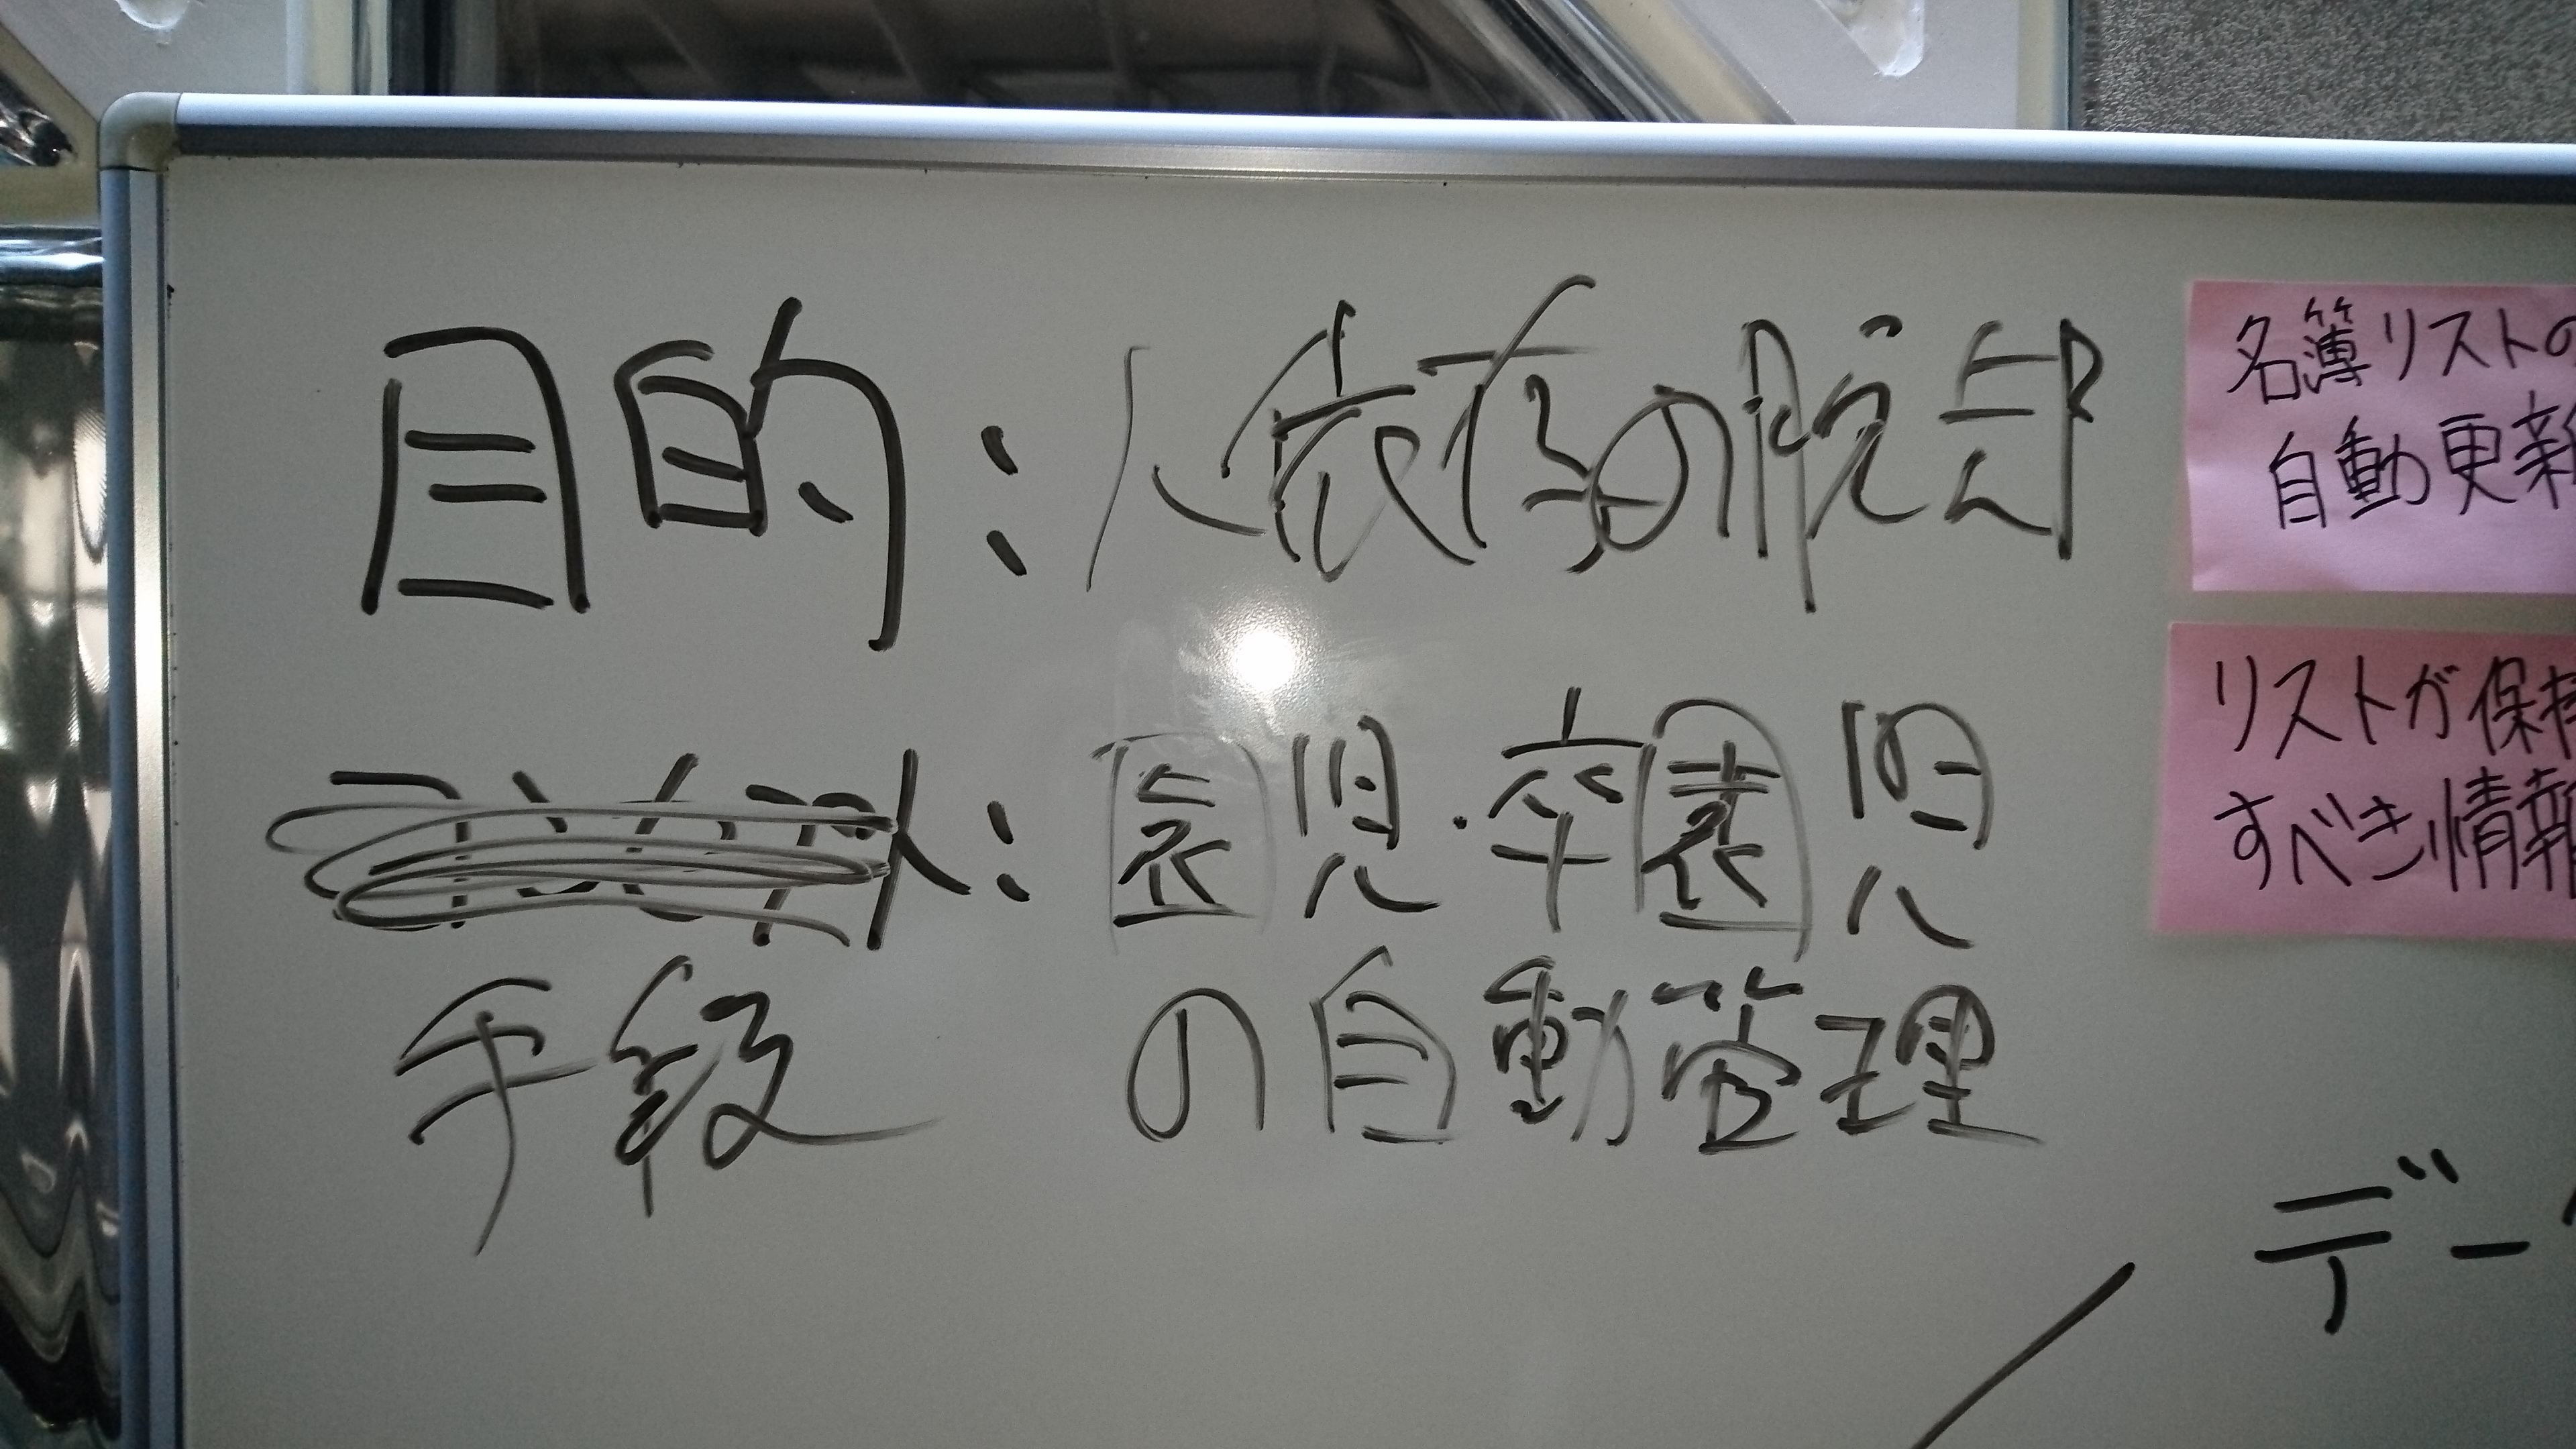 目的：人依存の脱却
：園児・卒園児
手段
の自動管理
名簿リストの
自動更新
リストが保持
すべき情報
デー